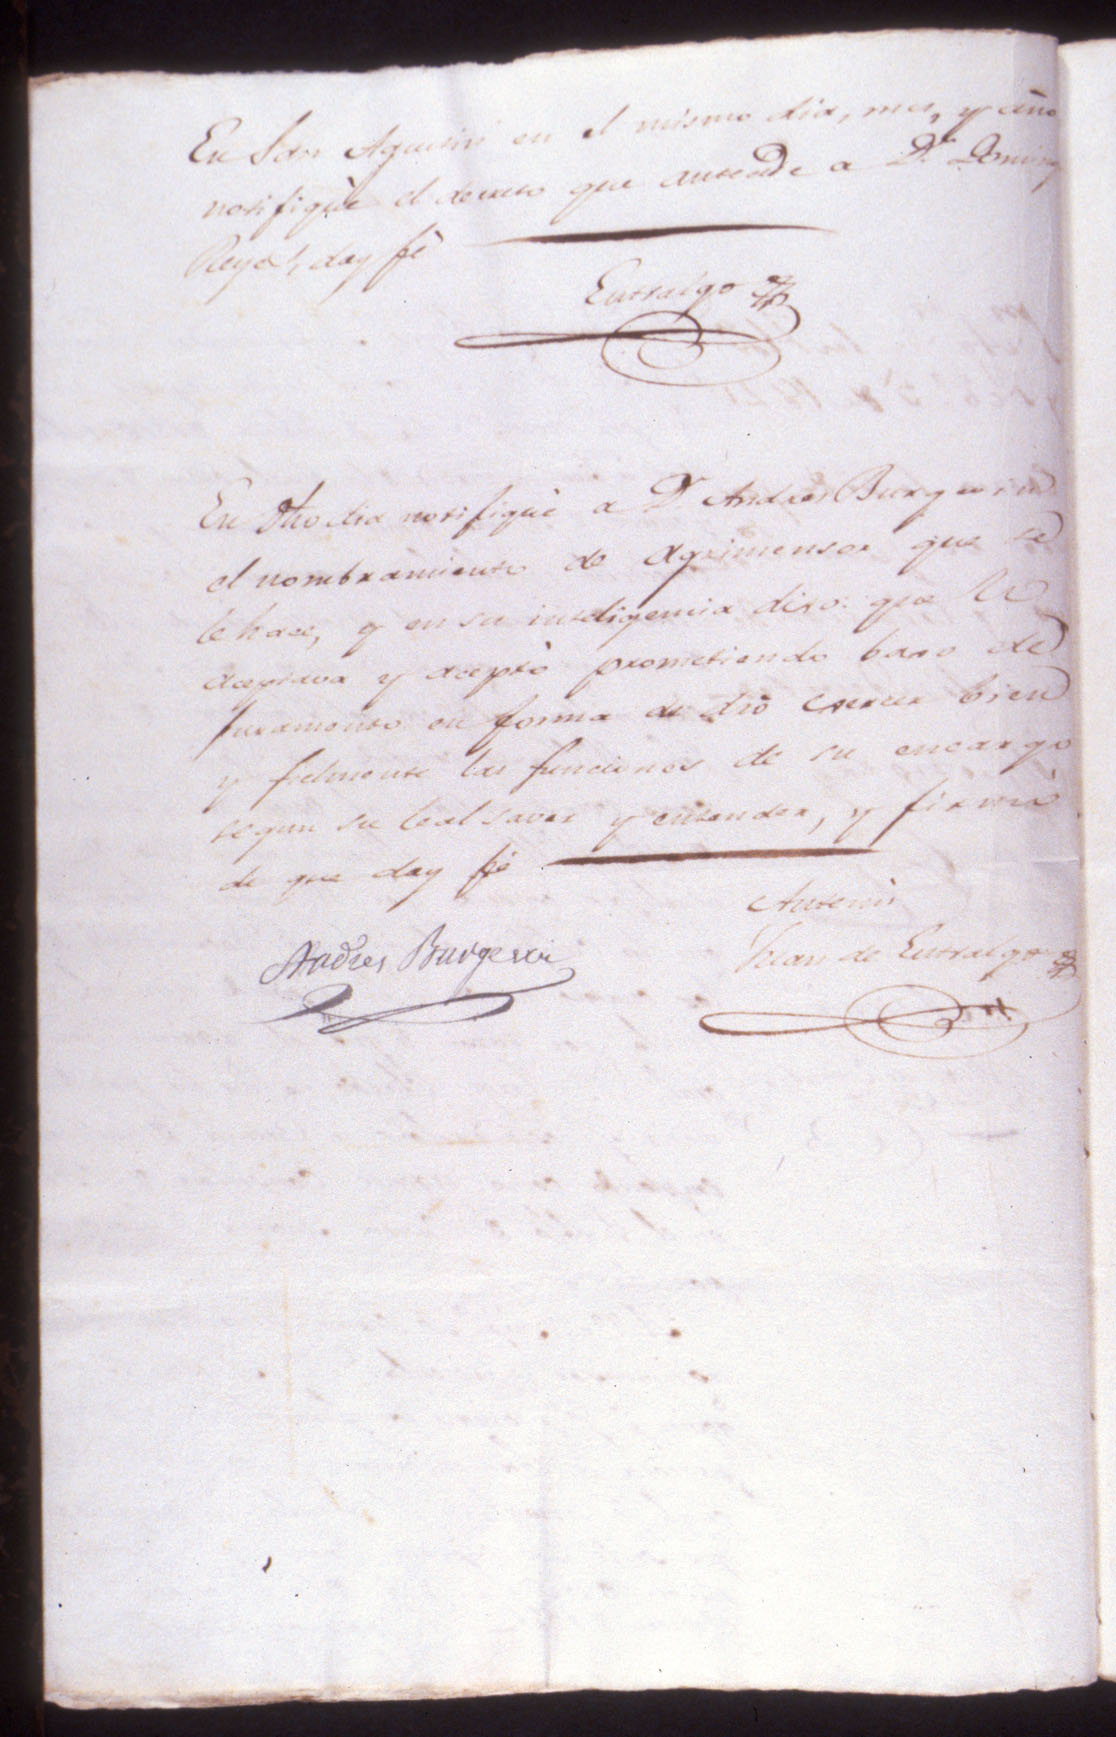 En Sn Agustin en el mismo dia, mes, y año
notifiquè el decreto que antecede a Dn Doming
Reyes, doy fè
Entralgo
En dho dia notifiquè a Dn Andres Burgevin
el nombramiento de Agrimensor que se
le hace, y en su inteligencia dixo: que lo
aceptava y aceptò prometiendo baxo de
juramento en forma de dro exercer bien
y fielmente las funciones de su encargo
segun su leal saver y entender, y firmò
de que doy fè
Andres Burgevin
Antemi
Juan de Entralgo